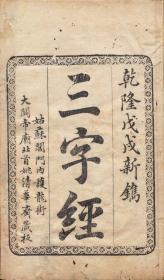 乾隆戊戌新鐫
三字經
姑蘇閶門內護龍街
大關帝廟北首姚清華齋藏板